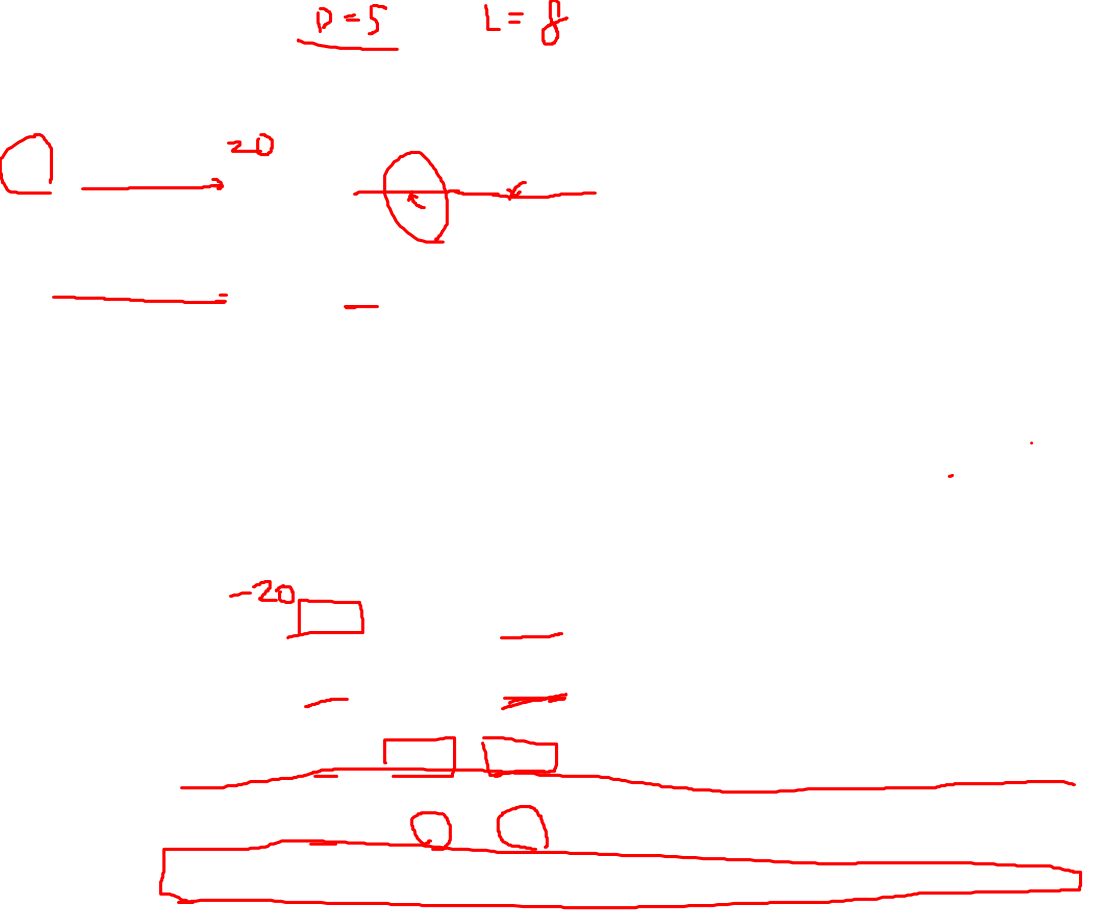 D=5 L=8
20
-20